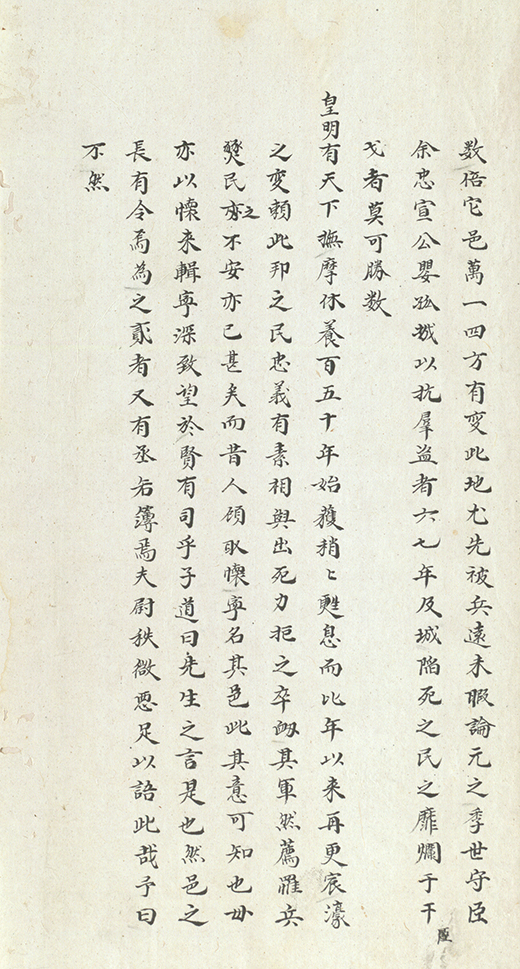 数倍它邑萬一四方有変此地尤先被兵遠未暇論元之季世守臣
余忠宣公嬰孤城以抗羣盗者六七年及城陷死之民之靡爛于干
戈者莫可勝数
皇明有天下撫摩休養百五十年始獲稍〻甦息而比年以来再更宸濠
之変頼此邦之民忠義有素相與出死力拒之卒衂其軍然薦罹兵
燹民亦之不安亦已甚矣而昔人顧取懷寧名其邑此其意可知也毋
亦以懷来輯寧深致望於賢有司乎子道曰先生之言是也然邑之
長有令焉為之貳者又有丞若簿焉夫尉秩微惡足以語此哉予曰
不然